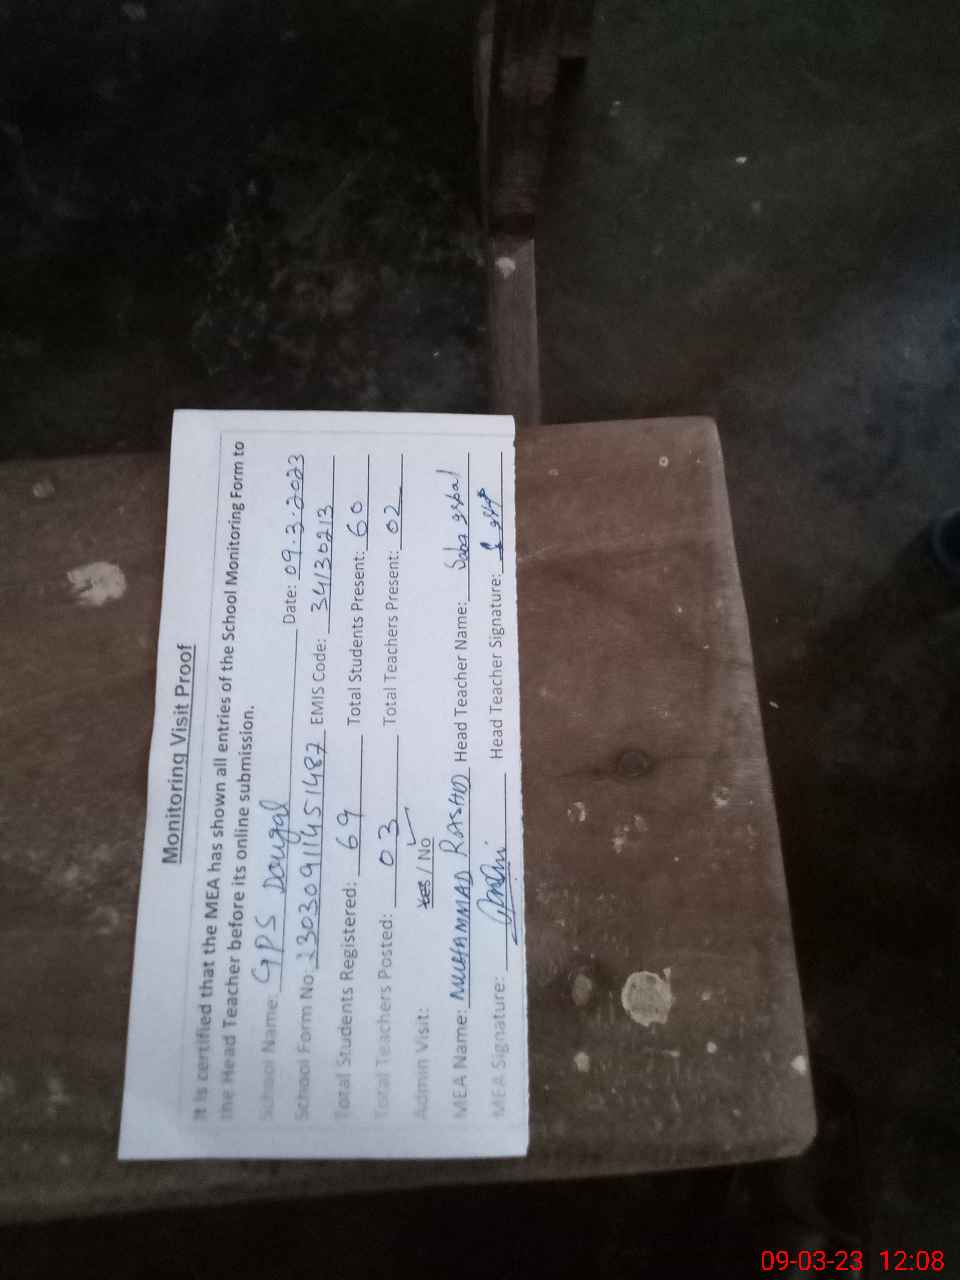 Monitoring Visit Proof
It is certified that the MEA has shown all entries of the School Monitoring Form to
the Head Teacher before its online submission.
School Name: GPS Dougal Date: 09.3.2023
School Form No: 23030911451487 EMIS Code: 34130213
Total Students Registered: 69 Total Students Present: 60
Total Teachers Posted: 03 Total Teachers Present: 02
Admin Visit: Yes / No
MEA Name: MUHAMMAD RASHID Head Teacher Name: Saba
MEA Signature: Head Teacher Signature:
09-03-23 12:08